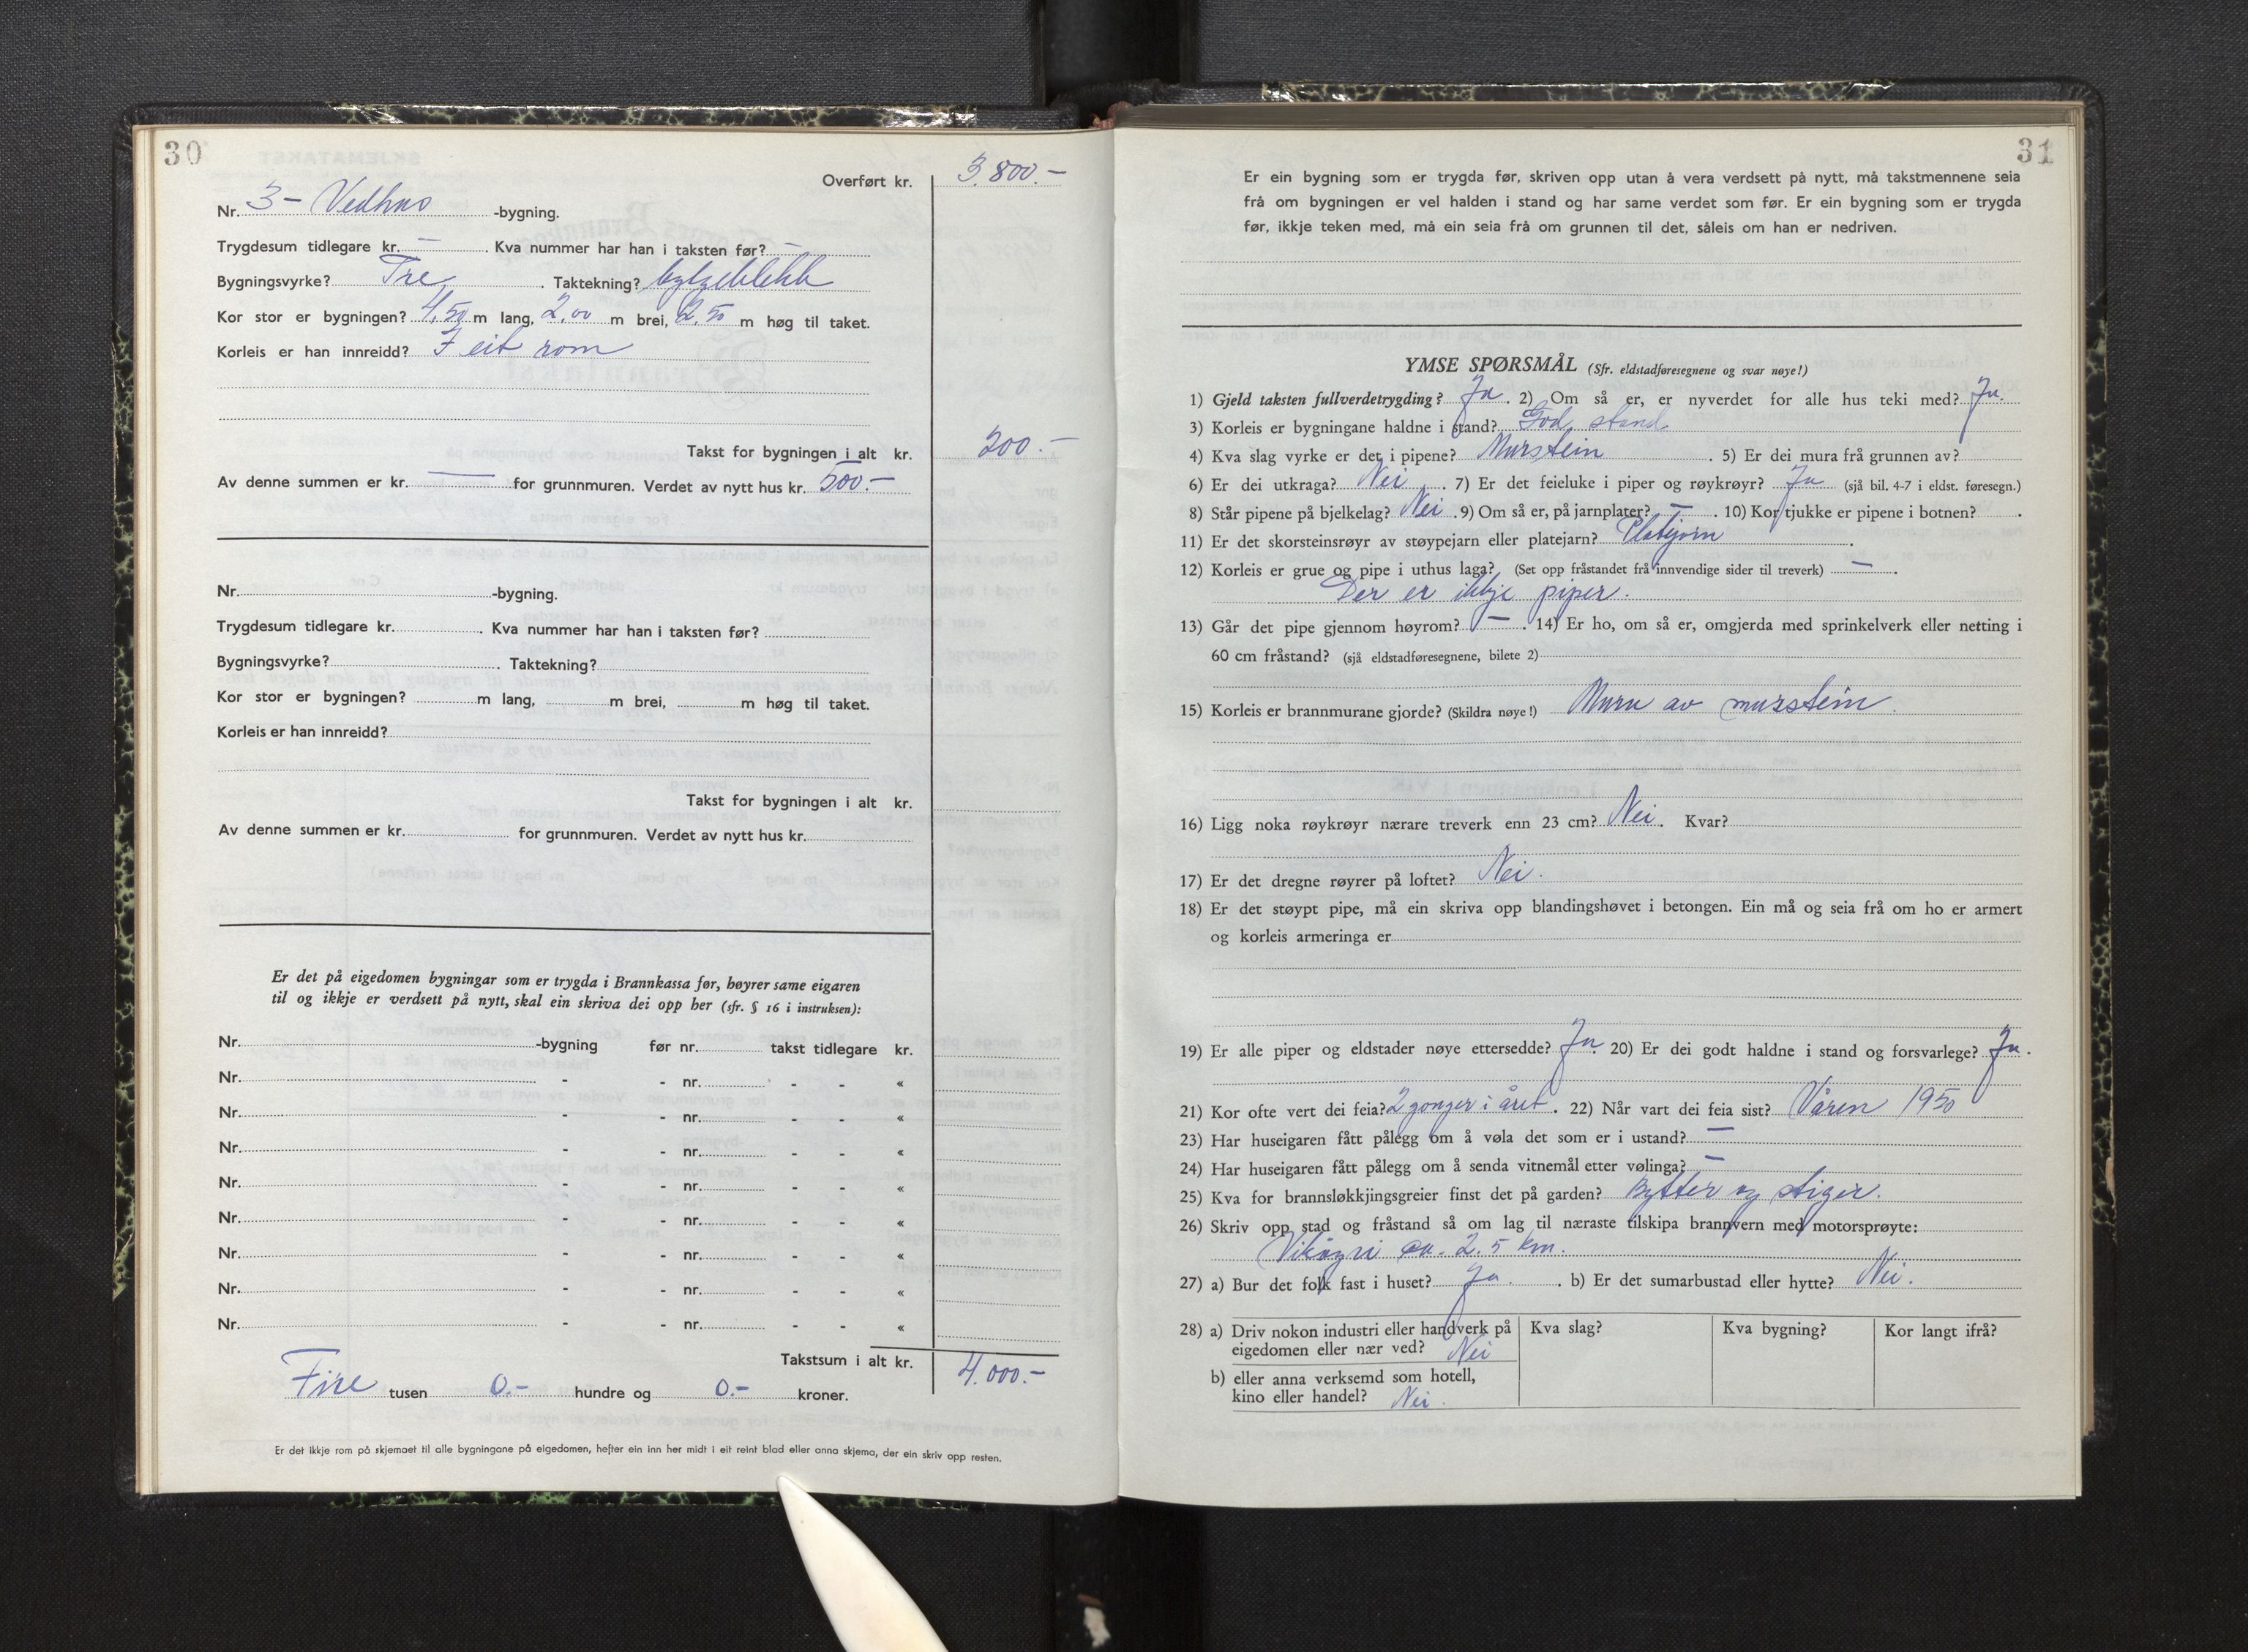 30
Overført kr. 3.800.—
Nr. 3 — Vedhus -bygning.
Trygdesum tidlegare kr. — . Kva nummer har han i taksten før? —
Bygningsvyrke? Tre . Taktekning? bylgeblekk
Kor stor er bygningen? 4,50 m lang, 2,00 m brei, 2,50 m høg til taket.
Korleis er han innreidd? I eit rom
Takst for bygningen i alt kr. 200.—
Av denne summen er kr. — for grunnmuren. Verdet av nytt hus kr. 500.—
Nr. -bygning.
Trygdesum tidlegare kr. . Kva nummer har han i taksten før?
Bygningsvyrke? . Taktekning?
Kor stor er bygningen? m lang, m brei, m høg til taket.
Korleis er han innreidd?
Takst for bygningen i alt kr.
Av denne summen er kr. for grunnmuren. Verdet av nytt hus kr.
Er det på eigedomen bygningar som er trygda i Brannkassa før, høyrer same eigaren
til og ikkje er verdsett på nytt, skal ein skriva dei opp her (sfr. § 16 i instruksen):
Nr. -bygning før nr. takst tidlegare kr.
Nr. - - nr. - - «
Nr. - - nr. - - «
Nr. - - nr. - - «
Nr. - - nr. - - «
Nr. - - nr. - - «
Nr. - - nr. - - «
Nr. - - nr. - - «
Nr. - - nr. - - «
Takstsum i alt kr. 4.000.—
Fire tusen 0.— hundre og 0.— kroner.
Er det ikkje rom på skjemaet til alle bygningane på eigedomen, hefter ein inn her midt i eit reint blad eller anna skjema, der ein skriv opp resten.
31
Er ein bygning som er trygda før, skriven opp utan å vera verdsett på nytt, må takstmennene seia
frå om bygningen er vel halden i stand og har same verdet som før. Er ein bygning som er trygda
før, ikkje teken med, må ein seia frå om grunnen til det, såleis om han er nedriven.
YMSE SPØRSMÅL (Sfr. eldstadføresegnene og svar nøye!)
1) Gjeld taksten fullverdetrygding? Ja. 2) Om så er, er nyverdet for alle hus teki med? Ja.
3) Korleis er bygningane haldne i stand? God stand
4) Kva slag vyrke er det i pipene? Murstein . 5) Er dei mura frå grunnen av?
6) Er dei utkraga? Nei . 7) Er det feieluke i piper og røykrøyr? Ja (sjå bil. 4-7 i eldst. føresegn.)
8) Står pipene på bjelkelag? Nei . 9) Om så er, på jarnplater? — . 10) Kor tjukke er pipene i botnen? .
11) Er det skorsteinsrøyr av støypejarn eller platejarn? Platejarn .
12) Korleis er grue og pipe i uthus laga? (Set opp fråstandet frå innvendige sider til treverk) — .
Der er ikkje piper.
13) Går det pipe gjennom høyrom? — . 14) Er ho, om så er, omgjerda med sprinkelverk eller netting i
60 cm fråstand? (sjå eldstadføresegnene, bilete 2)
15) Korleis er brannmurane gjorde? (Skildra nøye!) Mura av murstein.
16) Ligg noka røykrøyr nærare treverk enn 23 cm? Nei. Kvar?
17) Er det dregne røyrer på loftet? Nei.
18) Er det støypt pipe, må ein skriva opp blandingshøvet i betongen. Ein må og seia frå om ho er armert
og korleis armeringa er
19) Er alle piper og eldstader nøye ettersedde? Ja. 20) Er dei godt haldne i stand og forsvarlege? Ja.
21) Kor ofte vert dei feia? 2 gonger i året. 22) Når vart dei feia sist? Våren 1950
23) Har huseigaren fått pålegg om å vøla det som er i ustand? —
24) Har huseigaren fått pålegg om å senda vitnemål etter vølinga? —
25) Kva for brannsløkkjingsgreier finst det på garden? Bytter og stiger.
26) Skriv opp stad og fråstand så om lag til næraste tilskipa brannvern med motorsprøyte:
Vikøyri ca. 2.5 km.
27) a) Bur det folk fast i huset? Ja. . b) Er det sumarbustad eller hytte? Nei.
28) a) Driv nokon industri eller handverk på Kva slag? Kva bygning? Kor langt ifrå?
eigedomen eller nær ved? Nei
b) eller anna verksemd som hotell,
kino eller handel? Nei.